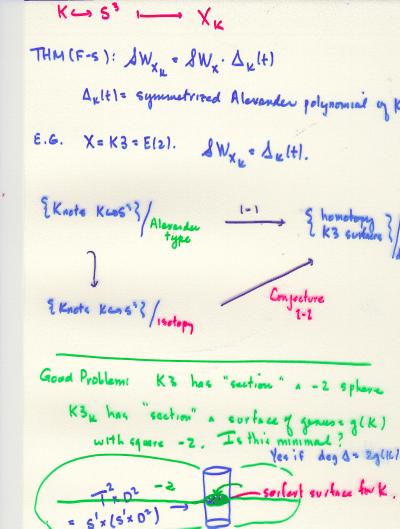 K ↪ S³ ⟼ X_K
THM (F-S): SW_{X_K} = SW_X · Δ_K(t)
Δ_K(t) = symmetrized Alexander polynomial of K
E.G. X = K3 = E(2). SW_{X_K} = Δ_K(t).
{Knots K ↪ S³}/Alexander type 1-1 → {homotopy K3 surfaces}/
{Knots K ↪ S³}/isotopy Conjecture 1-1
Good Problem: K3 has "section" a -2 sphere
K3_K has "section" a surface of genus = g(K)
with square -2. Is this minimal?
Yes if deg Δ = 2g(K)
T² × D² -2
= S¹ × (S¹ × D²) → seifert surface for K.